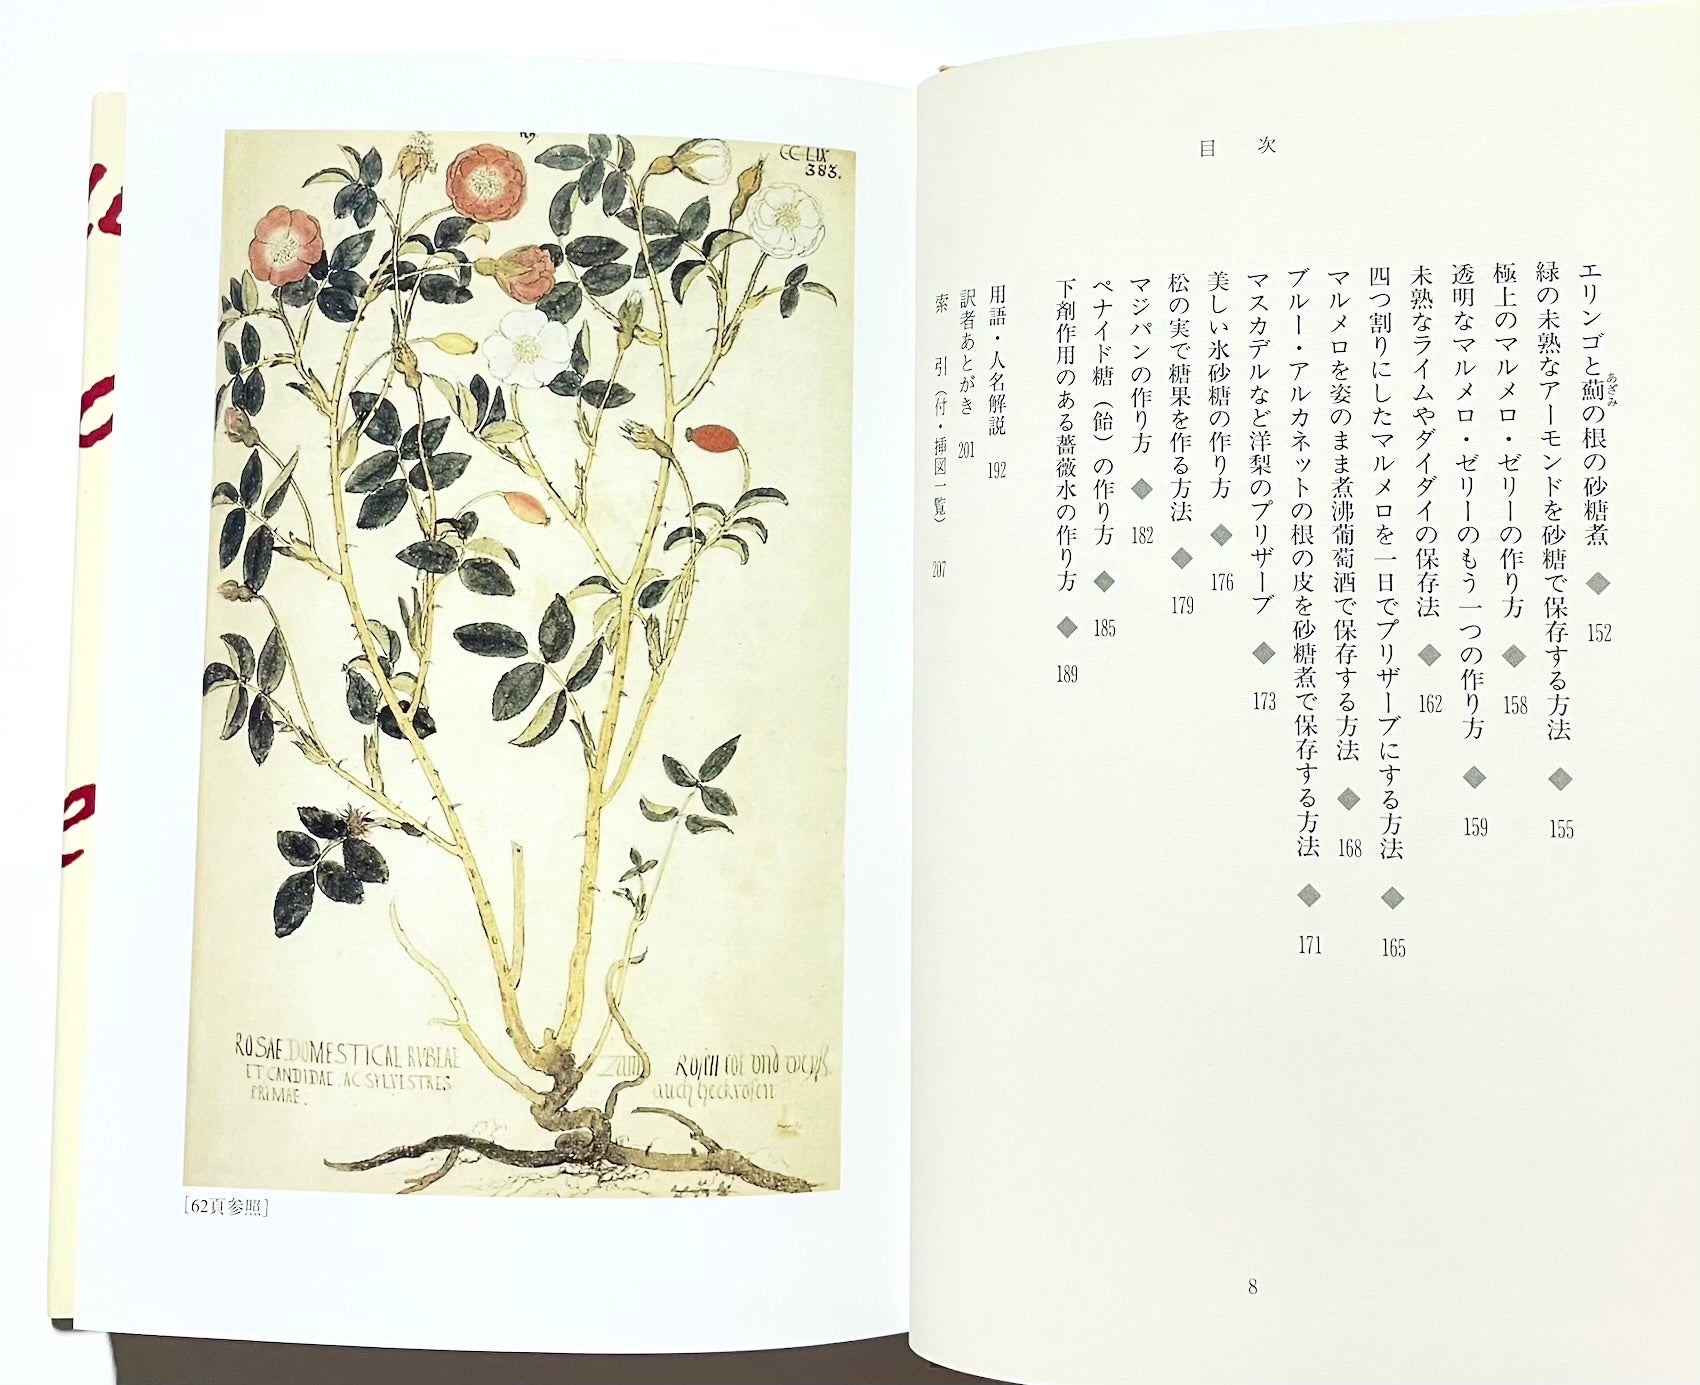 目次
エリンゴと薊の根の砂糖煮 ◆ 152
あざみ
緑の未熟なアーモンドを砂糖で保存する方法 ◆ 155
極上のマルメロ・ゼリーの作り方 ◆ 158
透明なマルメロ・ゼリーのもう一つの作り方 ◆ 159
未熟なライムやダイダイの保存法 ◆ 162
四つ割りにしたマルメロを一日でプリザーブにする方法 ◆ 165
マルメロを姿のまま煮沸葡萄酒で保存する方法 ◆ 168
ブルー・アルカネットの根の皮を砂糖煮で保存する方法 ◆ 171
マスカデルなど洋梨のプリザーブ ◆ 173
美しい氷砂糖の作り方 ◆ 176
松の実で糖果を作る方法 ◆ 179
マジパンの作り方 ◆ 182
ペナイド糖（飴）の作り方 ◆ 185
下剤作用のある薔薇水の作り方 ◆ 189
用語・人名解説 192
訳者あとがき 201
索引（付・挿図一覧） 207
8
CC·LIX
383.
ROSAE DOMESTICAE RVBEAE
ET CANDIDAE, AC SYLVESTRES
PRIMAE.
auch heckrosen
[62頁参照]